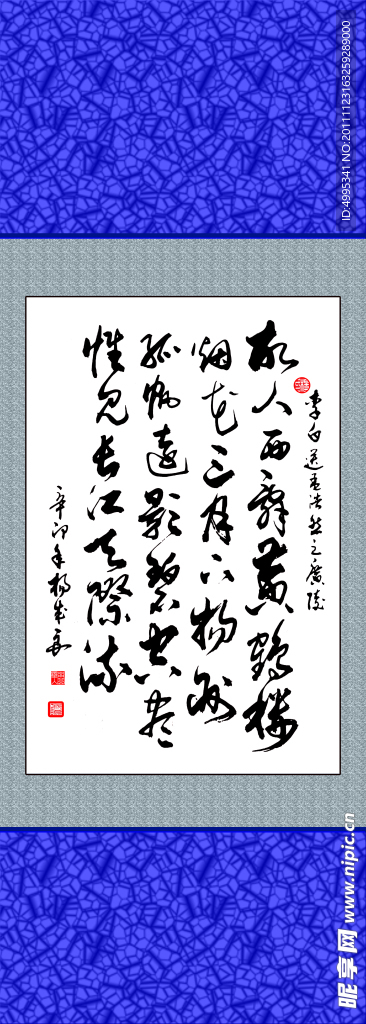 李白送孟浩然之廣陵
故人西辞黄鹤樓
烟花三月下揚州
孤帆遠影碧空尽
惟见长江天際流
辛卯年楊成
ID:4995341 NO:20111123163259289000
昵享网 www.nipic.cn